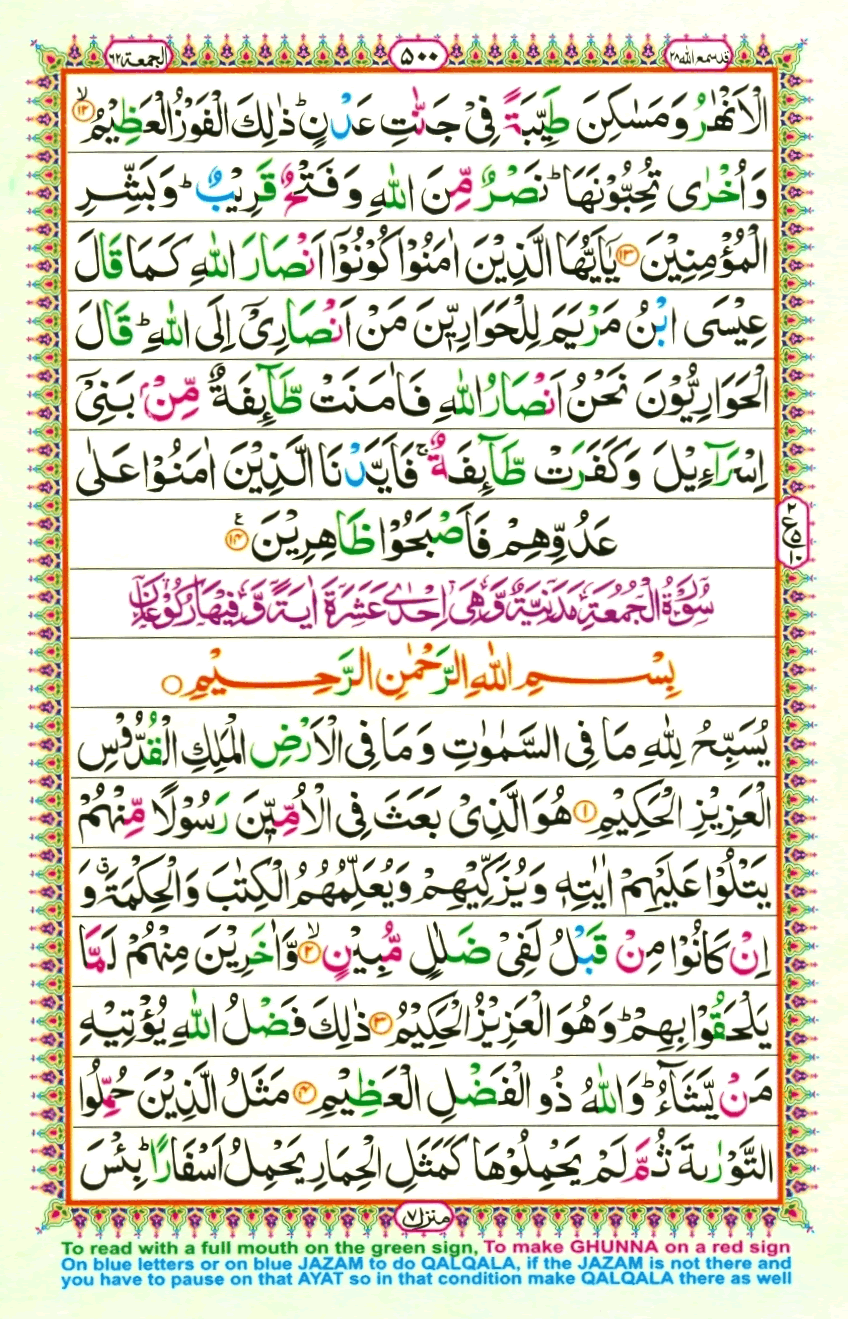 قد سمع الله ٢٨
٥٠٠
الجمعة ٦٢
الْاَنْهٰرُ وَمَسٰكِنَ طَيِّبَةً فِىْ جَنّٰتِ عَدْنٍ ؕ ذٰلِكَ الْفَوْزُ الْعَظِيْمُ ۙ﴿۱۲﴾
وَاُخْرٰى تُحِبُّوْنَهَا ؕ نَصْرٌ مِّنَ اللّٰهِ وَفَتْحٌ قَرِيْبٌ ؕ وَبَشِّرِ
الْمُؤْمِنِيْنَ ﴿۱۳﴾ يٰۤاَيُّهَا الَّذِيْنَ اٰمَنُوْا كُوْنُوْۤا اَنْصَارَ اللّٰهِ كَمَا قَالَ
عِيْسَى ابْنُ مَرْيَمَ لِلْحَوَارِيّٖنَ مَنْ اَنْصَارِىْۤ اِلَى اللّٰهِ ؕ قَالَ
الْحَوَارِيُّوْنَ نَحْنُ اَنْصَارُ اللّٰهِ فَاٰمَنَتْ طَّآئِفَةٌ مِّنْۢ بَنِىْۤ
اِسْرَآءِيْلَ وَكَفَرَتْ طَّآئِفَةٌ ۚ فَاَيَّدْنَا الَّذِيْنَ اٰمَنُوْا عَلٰى
عَدُوِّهِمْ فَاَصْبَحُوْا ظَاهِرِيْنَ ﴿۱۴﴾ ع
٢
ع
٥
١٠
سُوْرَةُ الْجُمُعَةِ مَدَنِيَّةٌ وَّهِىَ اِحْدٰى عَشَرَةَ اٰيَةً وَّفِيْهَا رُكُوْعَانِ
بِسْمِ اللّٰهِ الرَّحْمٰنِ الرَّحِيْمِ ○
يُسَبِّحُ لِلّٰهِ مَا فِى السَّمٰوٰتِ وَمَا فِى الْاَرْضِ الْمَلِكِ الْقُدُّوْسِ
الْعَزِيْزِ الْحَكِيْمِ ﴿۱﴾ هُوَ الَّذِىْ بَعَثَ فِى الْاُمِّيّٖنَ رَسُوْلًا مِّنْهُمْ
يَتْلُوْا عَلَيْهِمْ اٰيٰتِهٖ وَيُزَكِّيْهِمْ وَيُعَلِّمُهُمُ الْكِتٰبَ وَالْحِكْمَةَ ۗ وَ
اِنْ كَانُوْا مِنْ قَبْلُ لَفِىْ ضَلٰلٍ مُّبِيْنٍ ۙ﴿۲﴾ وَّاٰخَرِيْنَ مِنْهُمْ لَمَّا
يَلْحَقُوْا بِهِمْ ؕ وَهُوَ الْعَزِيْزُ الْحَكِيْمُ ﴿۳﴾ ذٰلِكَ فَضْلُ اللّٰهِ يُؤْتِيْهِ
مَنْ يَّشَآءُ ؕ وَاللّٰهُ ذُو الْفَضْلِ الْعَظِيْمِ ﴿۴﴾ مَثَلُ الَّذِيْنَ حُمِّلُوا
التَّوْرٰىةَ ثُمَّ لَمْ يَحْمِلُوْهَا كَمَثَلِ الْحِمَارِ يَحْمِلُ اَسْفَارًا ؕ بِئْسَ
منزل ٧
To read with a full mouth on the green sign, To make GHUNNA on a red sign
On blue letters or on blue JAZAM to do QALQALA, if the JAZAM is not there and
you have to pause on that AYAT so in that condition make QALQALA there as well